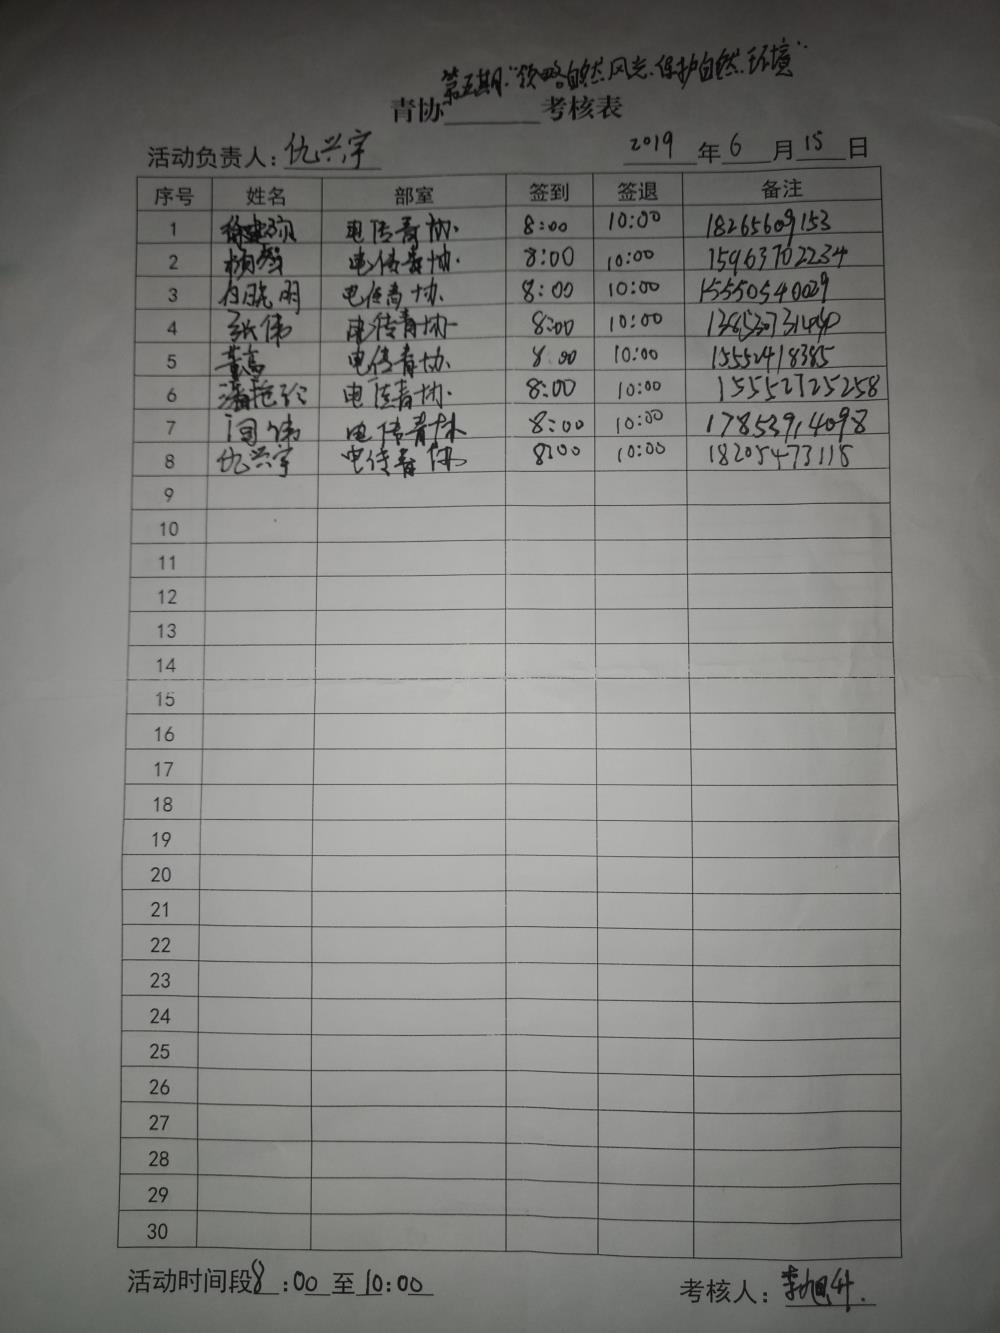 第五期"领略自然风光、保护自然环境"
青协 考核表
活动负责人:仇兴宇 2019 年 6 月 15 日
序号 姓名 部室 签到 签退 备注
1 电传青协 8:00 10:00 18265609153
2 杨智 电传青协 8:00 10:00 15963702234
3 白晓明 电传青协 8:00 10:00 15550540029
4 张伟 电传青协 8:00 10:00
5 董高 电传青协 8:00 10:00 15552418385
6 潘艳玲 电传青协 8:00 10:00 15552725258
7 闫伟 电传青协 8:00 10:00 17853914098
8 仇兴宇 电传青协 8:00 10:00 18205473118
9
10
11
12
13
14
15
16
17
18
19
20
21
22
23
24
25
26
27
28
29
30
活动时间段8:00 至10:00 考核人:李旭升